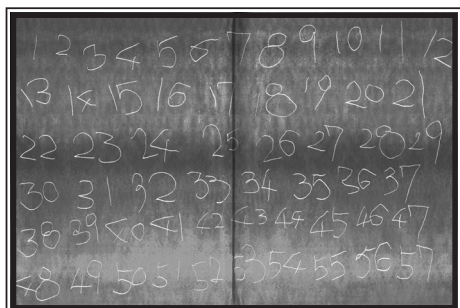 1 2 3 4 5 6 7 8 9 10 11 12
13 14 15 16 17 18 19 20 21
22 23 24 25 26 27 28 29
30 31 32 33 34 35 36 37
38 39 40 41 42 43 44 45 46 47
48 49 50 51 52 53 54 55 56 57